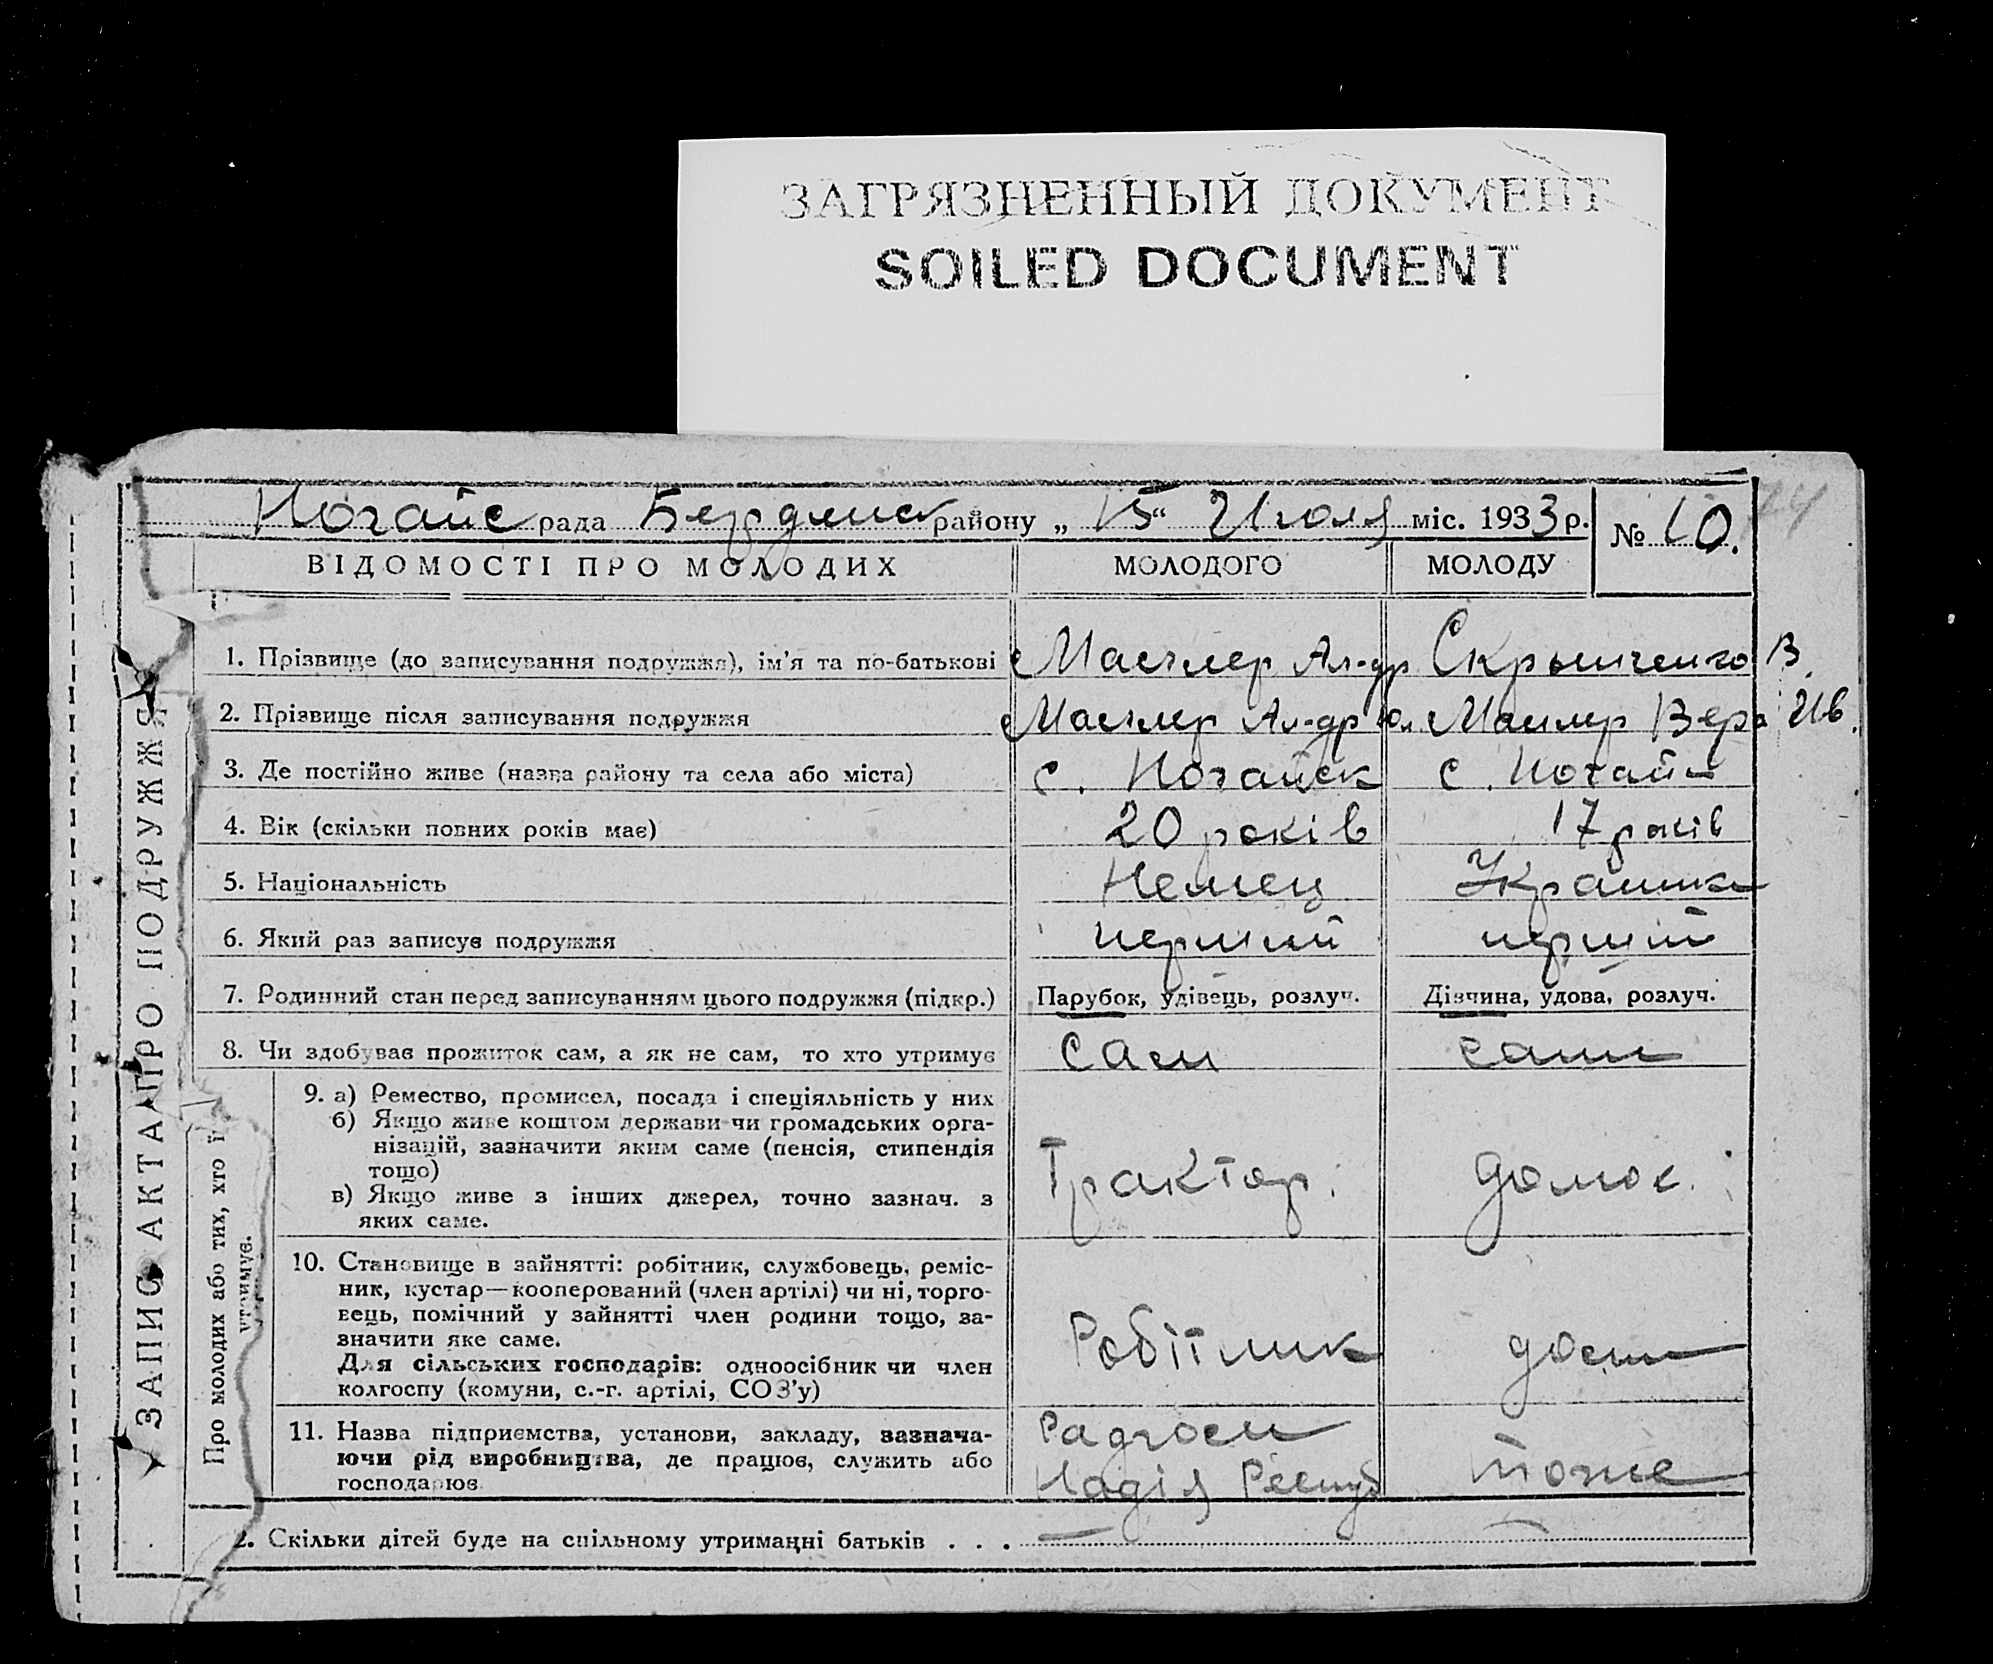 ЗАГРЯЗНЕННЫЙ ДОКУМЕНТ
SOILED DOCUMENT
Ногайс рада Бердянск району „15“ Июля міс. 1933 р. № 10.
ВІДОМОСТІ ПРО МОЛОДИХ МОЛОДОГО МОЛОДУ
ЗАПИС АКТА ПРО ПОДРУЖЖЯ
1. Прізвище (до записування подружжя), ім'я та по-батькові Ал-др В.
2. Прізвище після записування подружжя Ал-др Юл Вера Ив.
3. Де постійно живе (назва району та села або міста) с. Ногайск с. Ногайск
4. Вік (скільки повних років має) 20 років 17 років
5. Національність Немец Украинка
6. Який раз записує подружжя перший перший
7. Родинний стан перед записуванням цього подружжя (підкр.) Парубок, удівець, розлуч. Дівчина, удова, розлуч.
8. Чи здобуває прожиток сам, а як не сам, то хто утримує Сам сама
Про молодих або тих, хто ї
утримує.
9. а) Ремество, промисел, посада і спеціяльність у них
б) Якщо живе коштом держави чи громадських орга-
нізацій, зазначити яким саме (пенсія, стипендія
тощо) Трактор. домос.
в) Якщо живе з інших джерел, точно зазнач. з
яких саме.
10. Становище в зайнятті: робітник, службовець, реміс-
ник, кустар—кооперований (член артілі) чи ні, торго-
вець, помічний у зайнятті член родини тощо, за-
значити яке саме. Робітник
Для сільських господарів: одноосібник чи член
колгоспу (комуни, с.-г. артілі, СОЗ'у)
11. Назва підприємства, установи, закладу, зазнача- Радгосп
ючи рід виробництва, де працює, служить або тоже
господарює
2. Скільки дітей буде на спільному утриманні батьків . . . — —